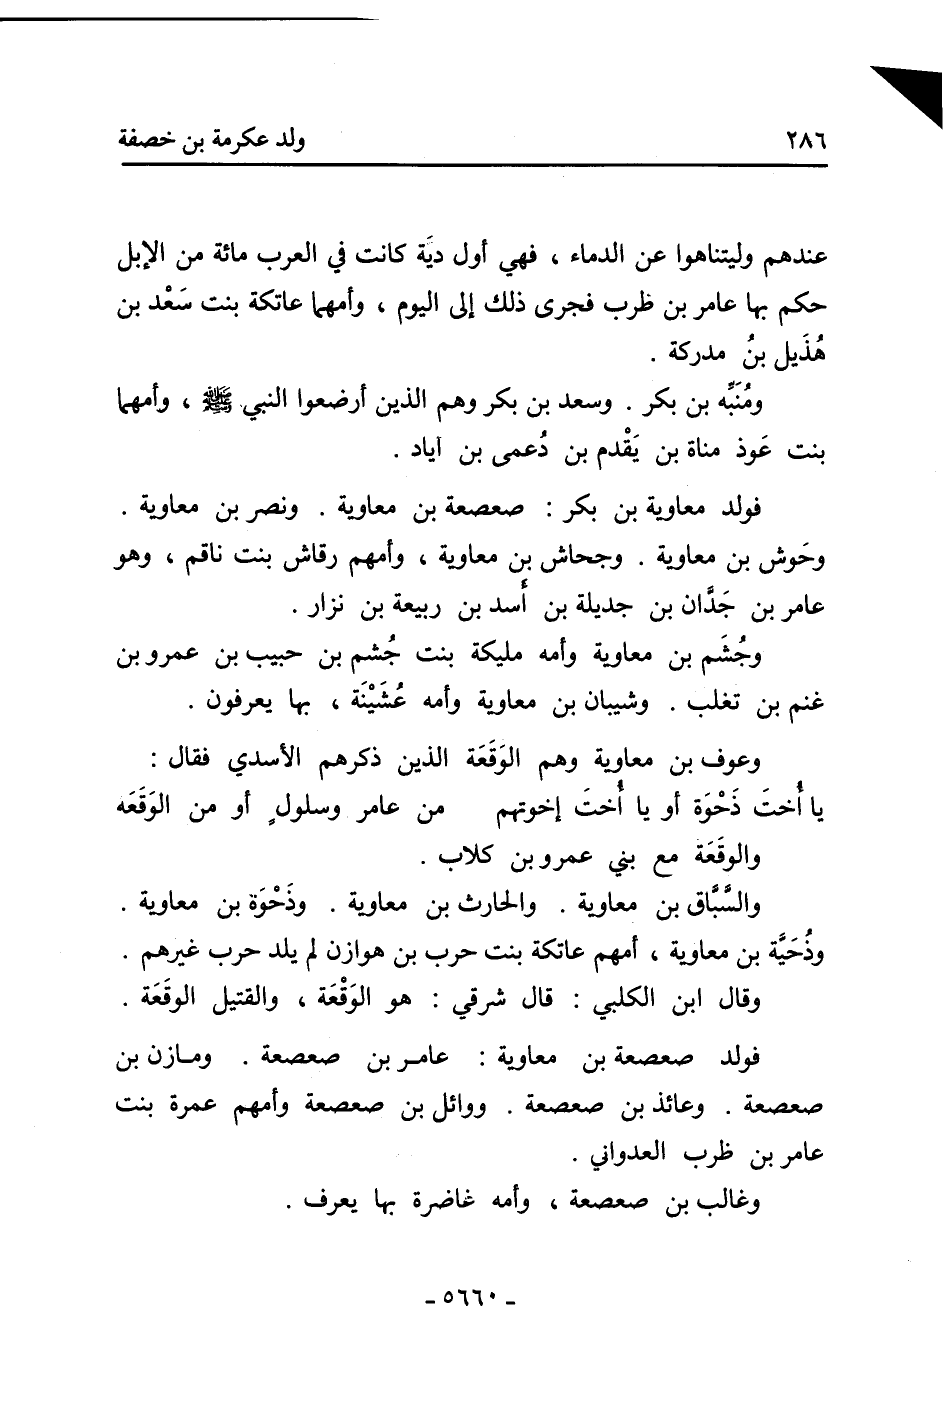 ٢٨٦ ولد عكرمة بن خصفة
عندهم وليتناهوا عن الدماء ، فهي أول ديَة كانت في العرب مائة من الإبل
حكم بها عامر بن ظرب فجرى ذلك إلى اليوم ، وأمهما عاتكة بنت سَعْد بن
هُذَيل بنُ مدركة .
ومُنَبِّه بن بكر . وسعد بن بكر وهم الذين أرضعوا النبي ﷺ ، وأمهما
بنت عَوذ مناة بن يَقْدم بن دُعمى بن اياد .
فولد معاوية بن بكر : صعصعة بن معاوية . ونصر بن معاوية .
وحَوش بن معاوية . وجحاش بن معاوية ، وأمهم رقاش بنت ناقم ، وهو
عامر بن جَدَّان بن جديلة بن أسد بن ربيعة بن نزار .
وجُشَم بن معاوية وأمه مليكة بنت جُشم بن حبيب بن عمرو بن
غنم بن تغلب . وشيبان بن معاوية وأمه عُشَيْنَة ، بها يعرفون .
وعوف بن معاوية وهم الوَقَعَة الذين ذكرهم الأسدي فقال :
يا أُختَ ذَحْوَة أو يا أُختَ إخوتهم من عامر وسلولٍ أو من الوَقَعَه
والوقَعَة مع بني عمرو بن كلاب .
والسَّبَّاق بن معاوية . والحارث بن معاوية . وذَحْوَة بن معاوية .
وذُحَيَّة بن معاوية ، أمهم عاتكة بنت حرب بن هوازن لم يلد حرب غيرهم .
وقال ابن الكلبي : قال شرقي : هو الوَقْعَة ، والقتيل الوقَعَة .
فولد صعصعة بن معاوية : عامر بن صعصعة . ومازن بن
صعصعة . وعائذ بن صعصعة . ووائل بن صعصعة وأمهم عمرة بنت
عامر بن ظرب العدواني .
وغالب بن صعصعة ، وأمه غاضرة بها يعرف .
- ٥٦٦٠ -